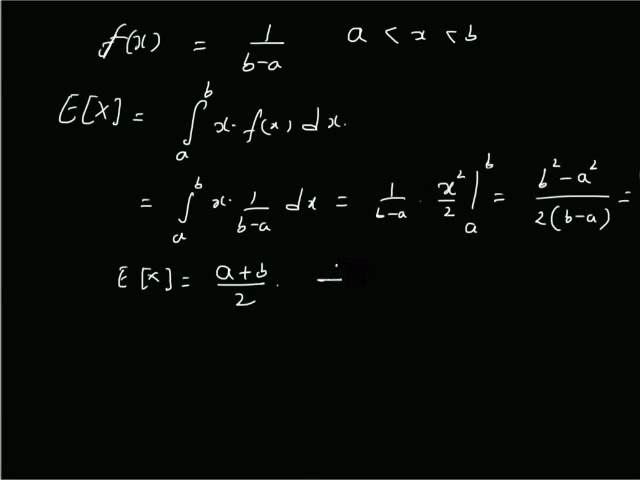 f(x) = 1/(b-a) a < x < b
E[X] = ∫_a^b x · f(x) dx.
= ∫_a^b x · 1/(b-a) dx = 1/(b-a) · x²/2 |_a^b = (b² - a²)/(2(b-a)) =
E[X] = (a+b)/2 .